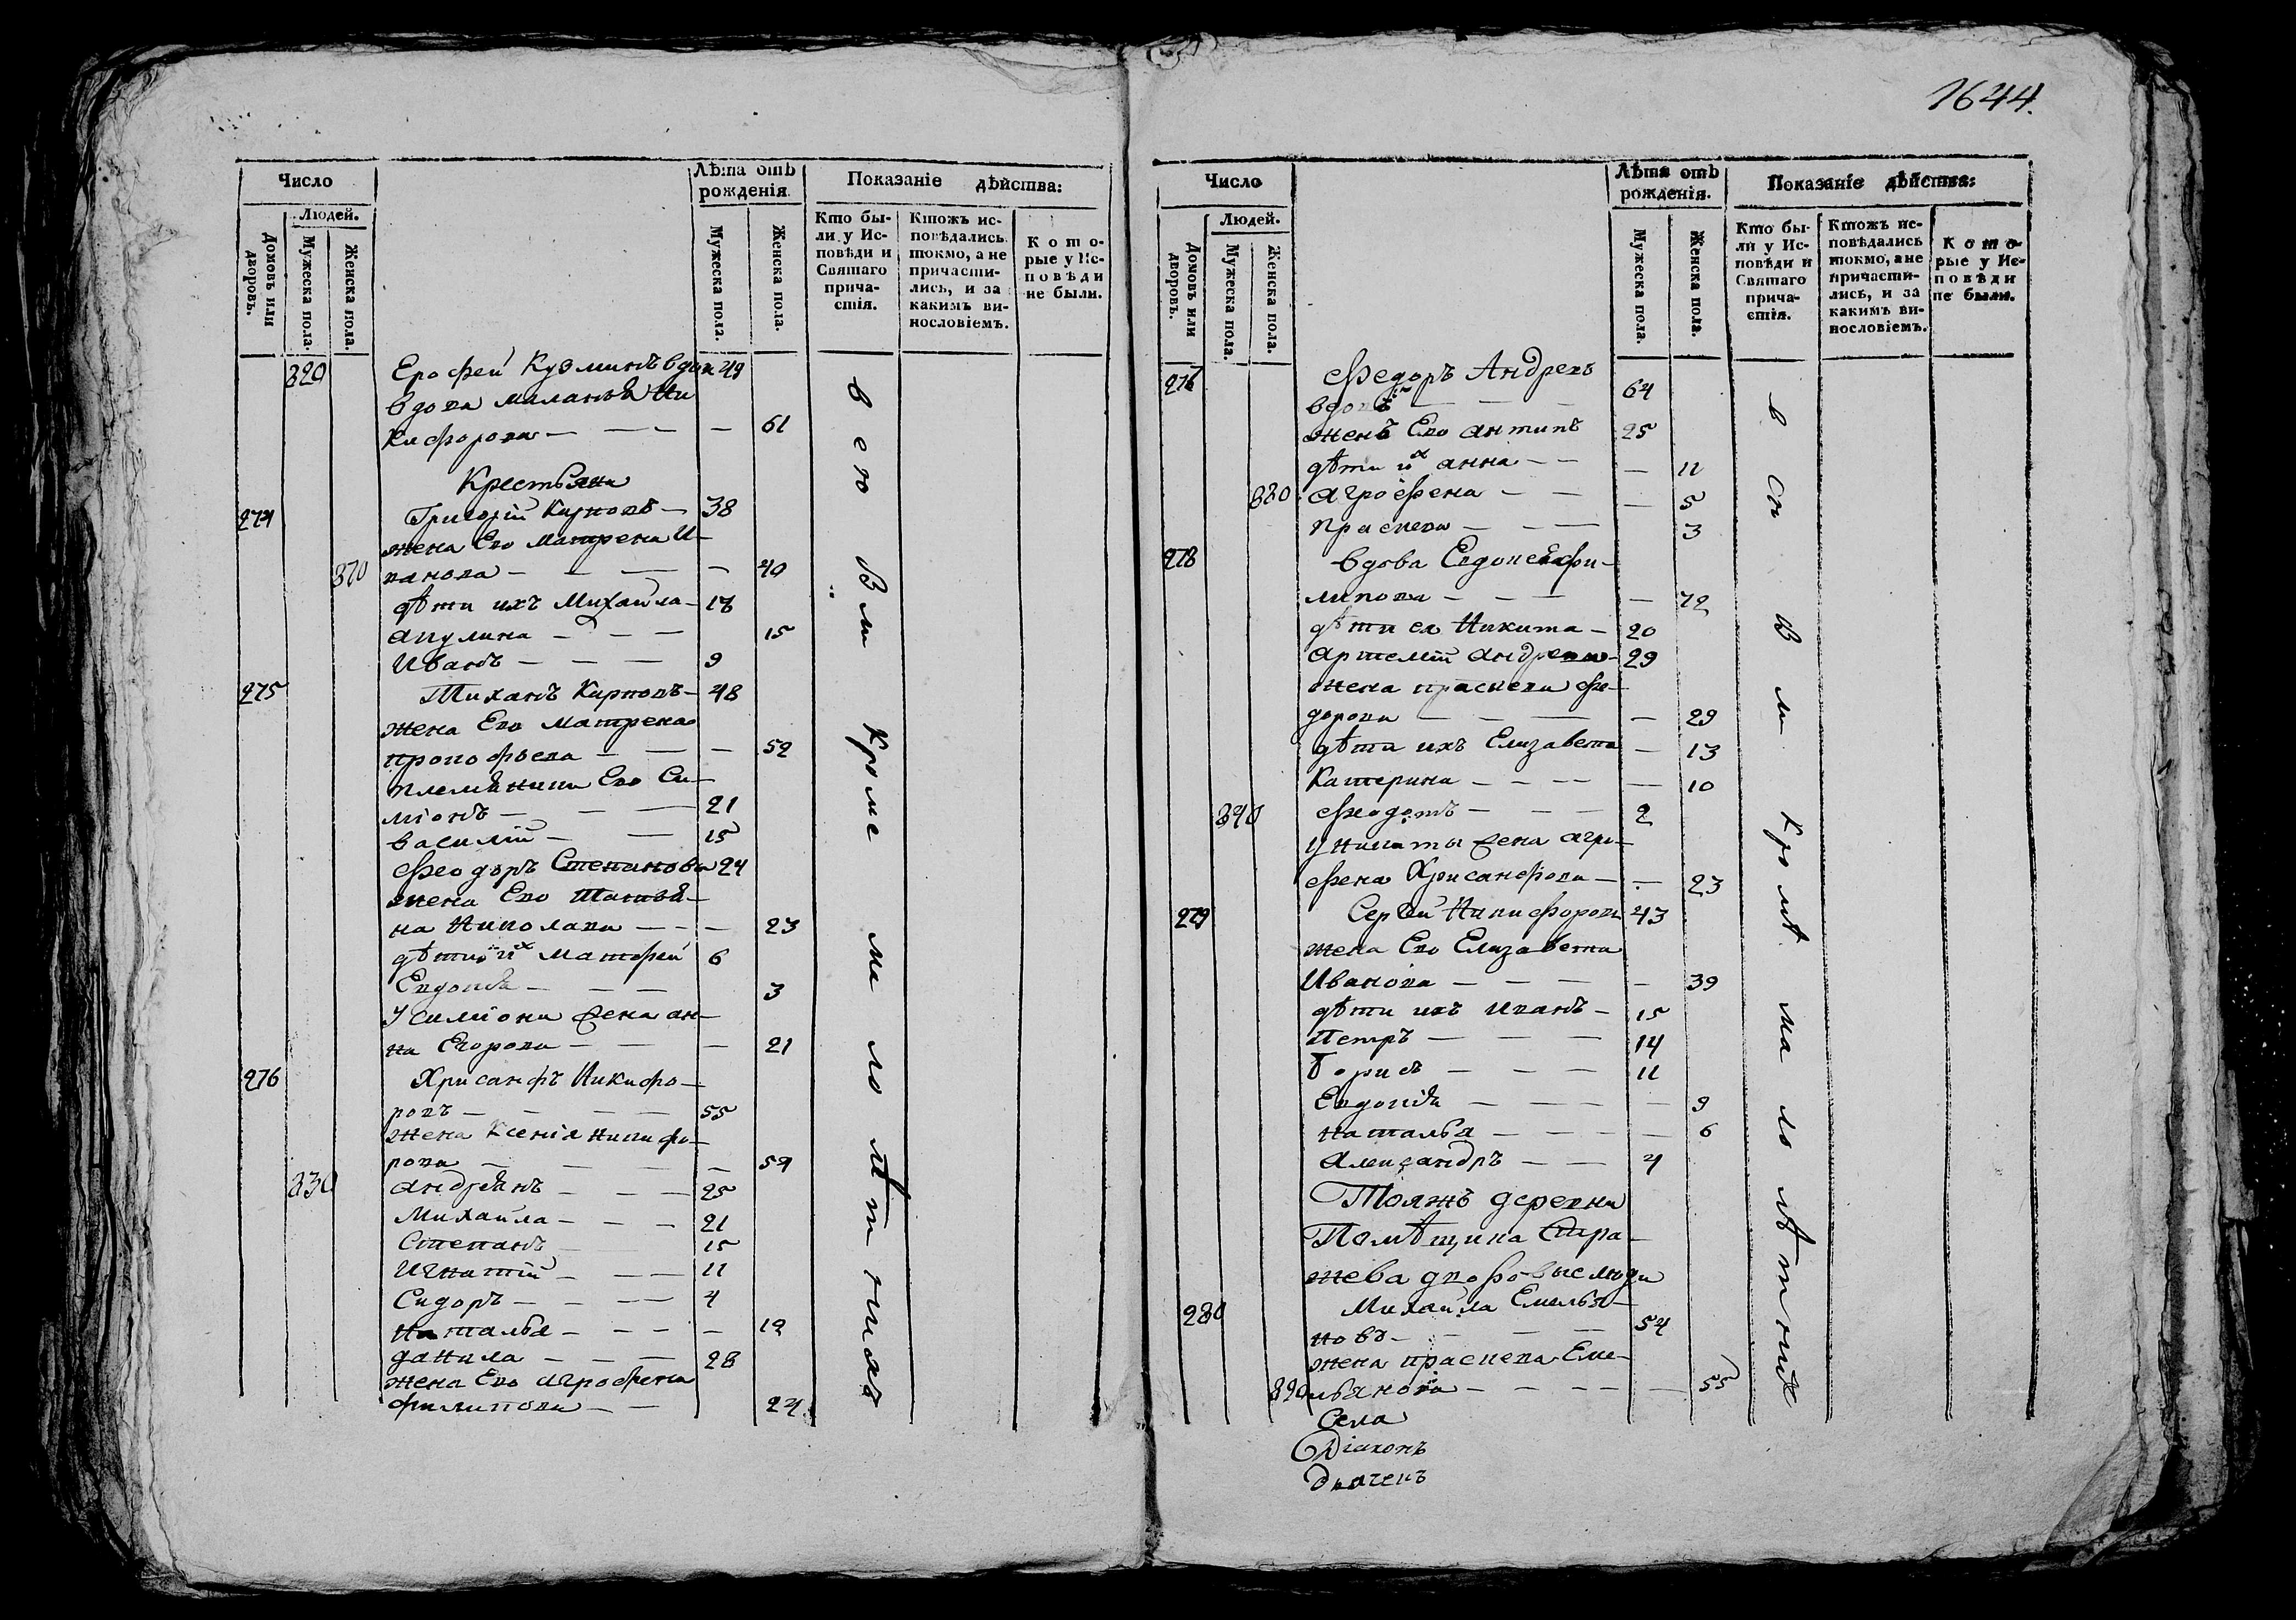 1644.
Число
Лѣта отъ рожденія.
Показаніе дѣйства:
Людей.
Домовъ или дворовъ.
Мужеска пола.
Женска пола.
Мужеска пола.
Женска пола.
Кто бы-
ли у Ис-
повѣди и
Святаго
прича-
стія.
Ктожъ ис-
повѣдались
токмо, а не
причасти-
лись, и за
какимъ ви-
нословіемъ.
Кото-
рые у Ис-
повѣди
не были.
320 Ерофей Кузминъ вдов 49
вдова маланья Ни
кифорова — — — — 61
Крестьяни
274 Григорій Карповъ — 38
жена Ево Матрена И-
370 ванова — — — — 40
дѣти ихъ Михайла — 18
акулина — — — 15
Иванъ — — — 9
275 Тиханъ Карповъ — 48
жена Ево Матрена
прокофьева — — — 52
племянники Ево Си-
міонъ — — — 21
василій — — 15
Феодоръ Степановъ 24
жена Ево Татья-
на Николаева — — — 23
дѣти их Матфей 6
Евдокія — — — 3
У Симіона жена ан-
на Егорова — — — 21
276 Хрисанфъ Никифо-
ровъ — — — — 55
жена Ксенія Никифо-
рова — — — — 54
330 андріянъ — — — 25
Михайла — — — 21
Степанъ — 15
Игнатій — — — 11
Сидоръ — — — 4
Наталья — — — — 12
данила — — — 28
жена Ево агрофена
филипова — — 24
всѣ Были Кроме малолѣтнихъ
Число
Лѣта отъ рожденія.
Показаніе дѣйства:
Людей.
Домовъ или дворовъ.
Мужеска пола.
Женска пола.
Мужеска пола.
Женска пола.
Кто бы-
ли у Ис-
повѣди и
Святаго
прича-
стія.
Ктожъ ис-
повѣдались
токмо, а не
причасти-
лись, и за
какимъ ви-
нословіемъ.
Кото-
рые у Ис-
повѣди
не были.
277 Федоръ Андреевъ
вдовъ — — — 64
Ево антипъ 25
дѣти их анна — — — 11
380 агрофена — — — 5
праскева — — — 3
278 вдова Евдокея фи-
липова — — — — 72
дѣти ея Никита — 20
артемій андреевъ — 29
жена праскева Фе-
дорова — — — — 29
дѣти ихъ Елизавета — 13
Катерина — — — — — 10
340 Феодотъ — — — 2
У Никиты жена агро-
фена Хрисанфова — — 23
279 Сергѣй Никифоровъ 43
жена Ево Елизавета
Иванова — — — — 39
дѣти ихъ Иванъ — 15
Петръ — — — 14
Борисъ — — — 11
Евдокія — — — — 9
Наталья — — — — 6
Александръ — — 4
Тояжъ деревни
Помѣщика Стра-
жева дворовые люди
280 Михайла Емелья-
новъ — — — 54
жена праскева Еме-
390 льянова — — — — — 55
Села
Діаконъ
Дьячекъ